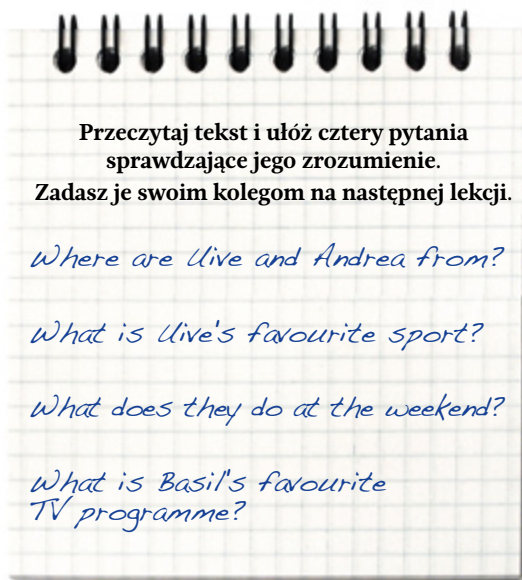 Przeczytaj tekst i ułóż cztery pytania
sprawdzające jego zrozumienie.
Zadasz je swoim kolegom na następnej lekcji.
Where are Clive and Andrea from?
What is Clive's favourite sport?
What does they do at the weekend?
What is Basil's favourite
TV programme?